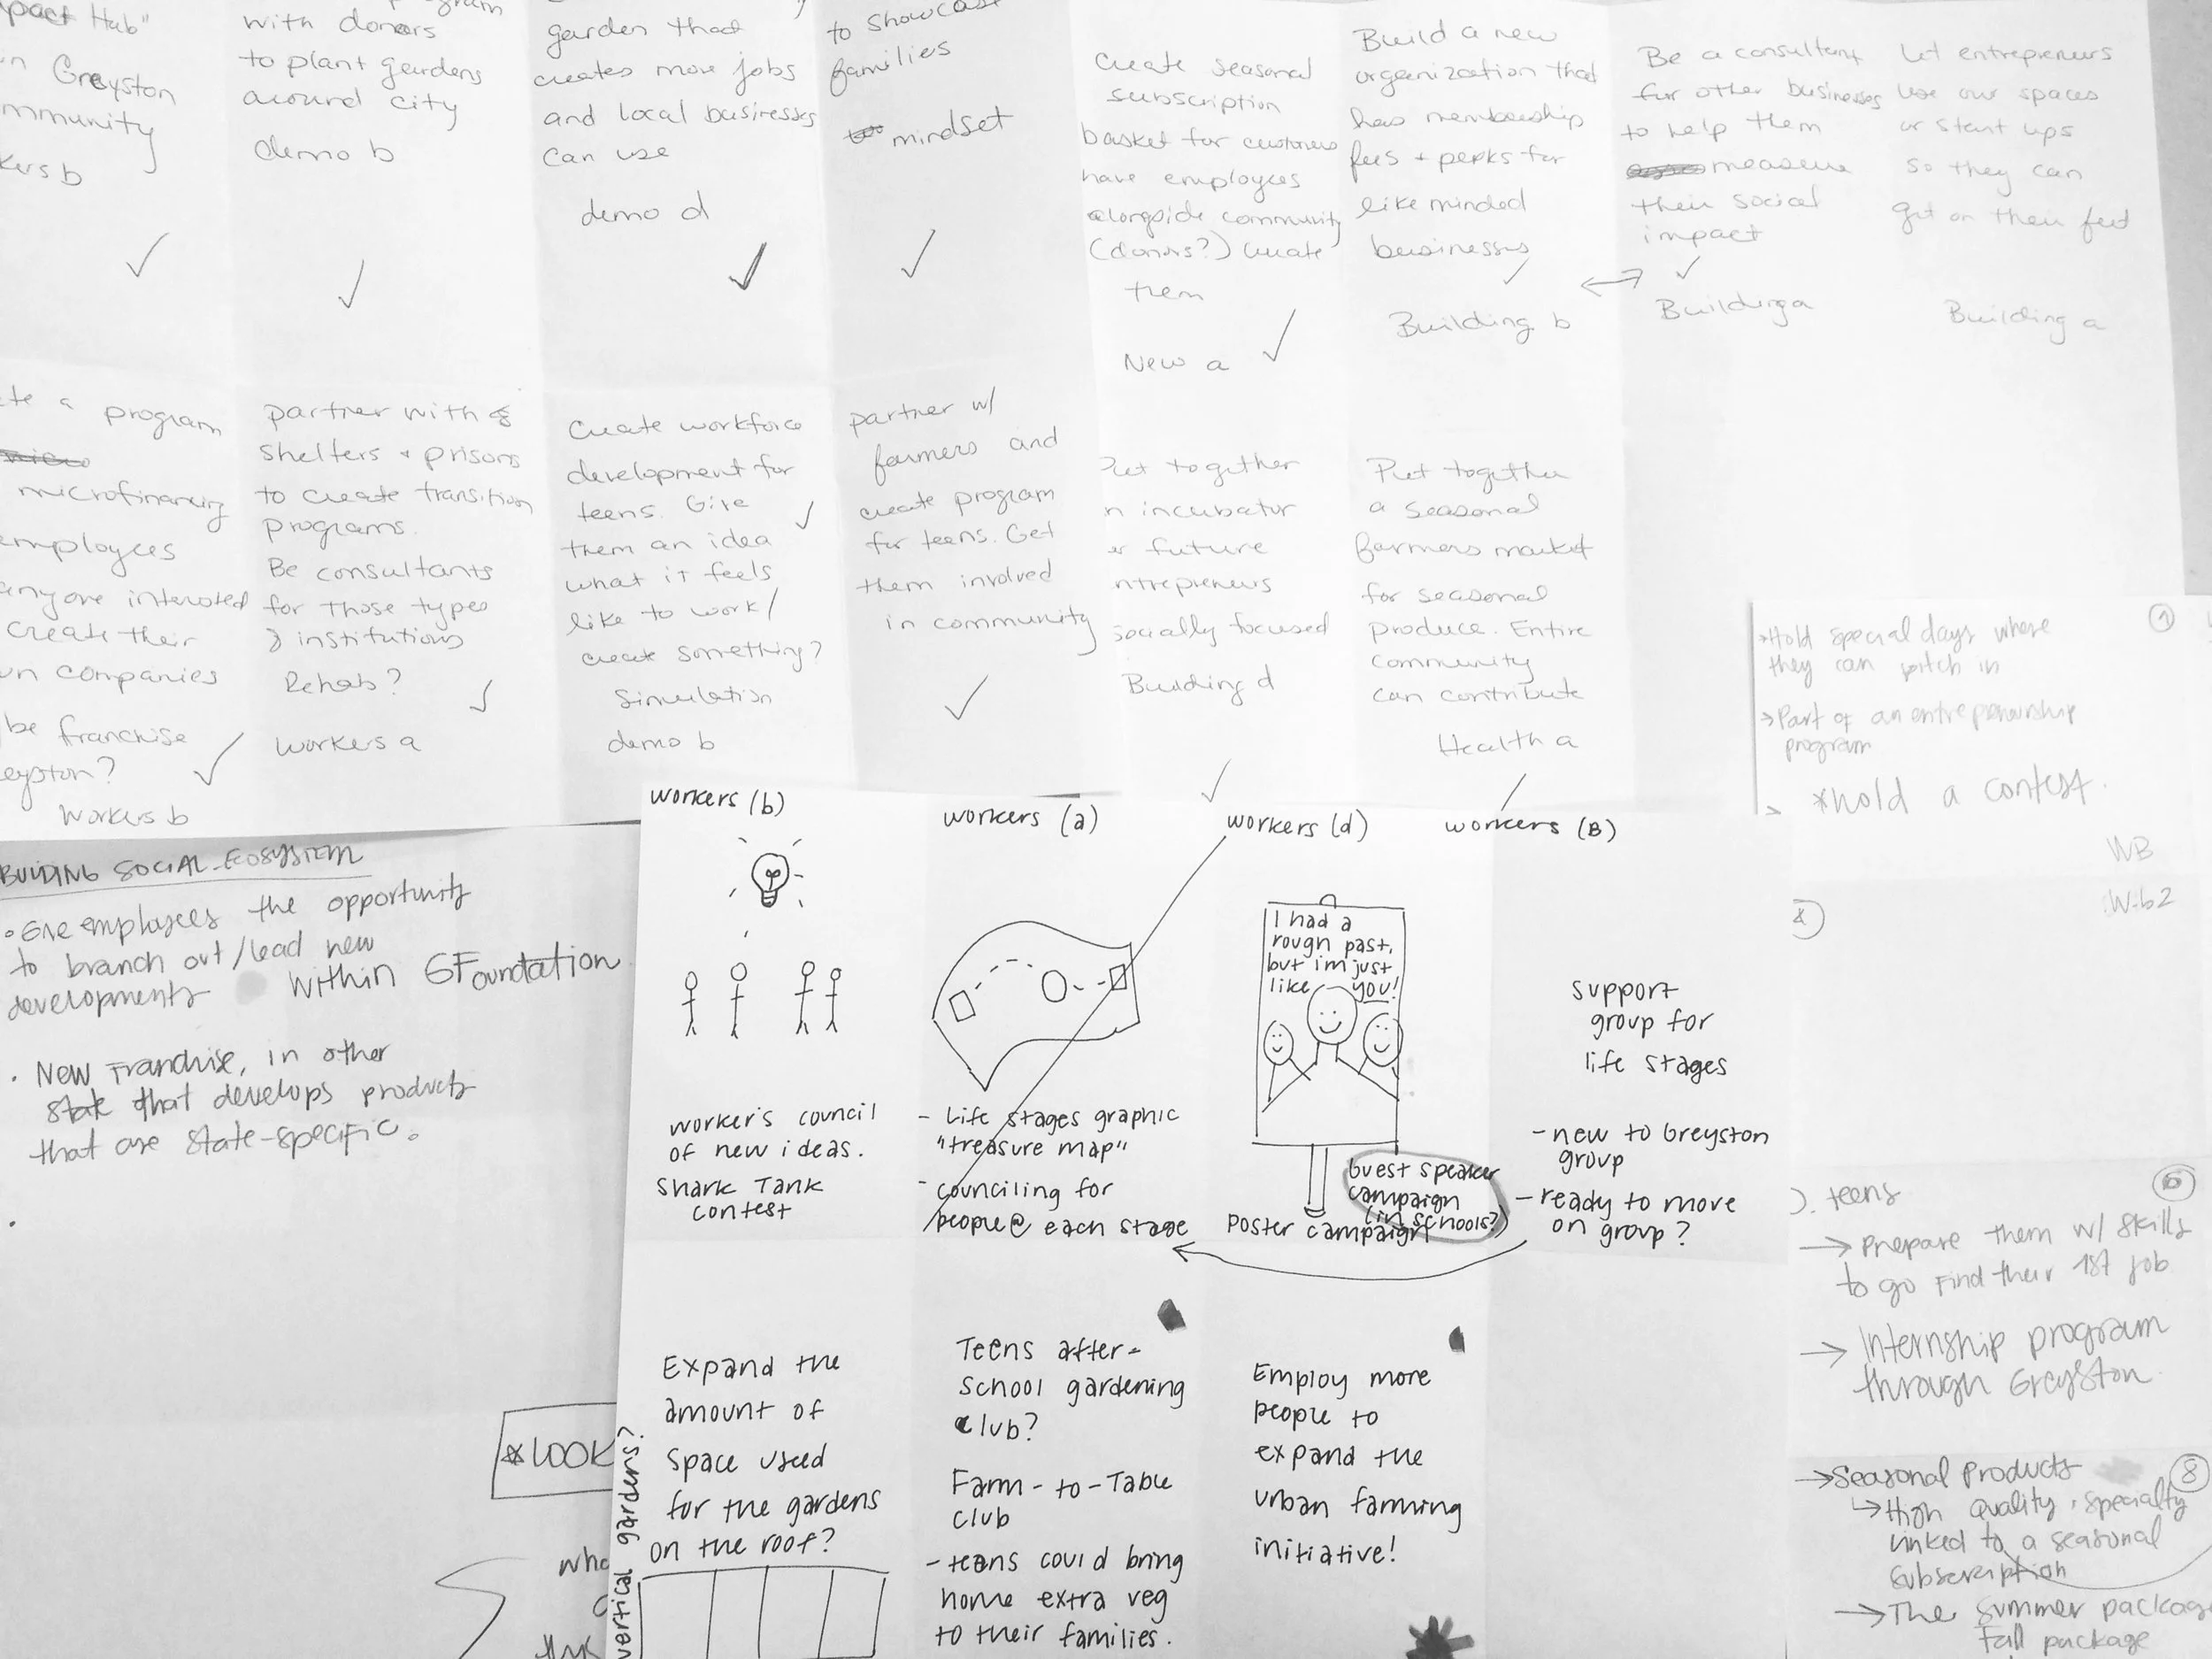 Hub"
Greyston
with donors
to plant gardens
around city
demo b
garden that
creates more jobs
and local businesses
can use
demo d
to showcase
families
mindset
Create seasonal
subscription
basket for customers
have employees
alongside community
(donors?) create
them
New a
Build a new
organization that
has membership
fees + perks for
like minded
businesses
Building b
Be a consultant
for other businesses
to help them
measure
their social
impact
Building a
Let entrepreneurs
use our spaces
or start ups
so they can
get on their feet
Building a
a program
microfinancing
employees
anyone interested
create their
companies
be franchise
workers b
partner with
shelters + prisons
to create transition
programs.
Be consultants
for those types
of institutions
Rehab?
workers a
Create workforce
development for
teens. Give
them an idea
what it feels
like to work/
create something?
Simulation
demo b
partner w/
farmers and
create program
for teens. Get
them involved
in community
Put together
incubator
future
entrepreneurs
socially focused
Building d
Put together
a seasonal
farmers market
for seasonal
produce. Entire
community
can contribute
Health a
Hold special days where
they can pitch in
Part of an entreprenourship
program
*hold a contest.
WB
W.b2
BUILDING SOCIAL ECOSYSTEM
Give employees the opportunity
to branch out/lead new
developments within GFoundation
New Franchise, in other
state that develops products
that are state-specific.
LOOK
workers (b)
worker's council
of new ideas.
Shark Tank
contest
workers (a)
- Life stages graphic
"treasure map"
- counciling for
people @ each stage
workers (d)
I had a
rough past,
but i'm just
like you!
Guest speaker
campaign
(in schools?)
Poster campaign
workers (B)
support
group for
life stages
- new to Greyston
group
- ready to move
on group?
vertical gardens?
Expand the
amount of
space used
for the gardens
on the roof?
Teens after-
school gardening
club?
Farm-to-Table
club
- teens could bring
home extra veg
to their families.
Employ more
people to
expand the
urban farming
initiative!
teens
6
→ Prepare them w/ skills
to go find their 1st job
→ Internship program
through Greyston
8
→ Seasonal Products
↳ High Quality, specialty
linked to a seasonal
subscription
→ The summer package
Fall package